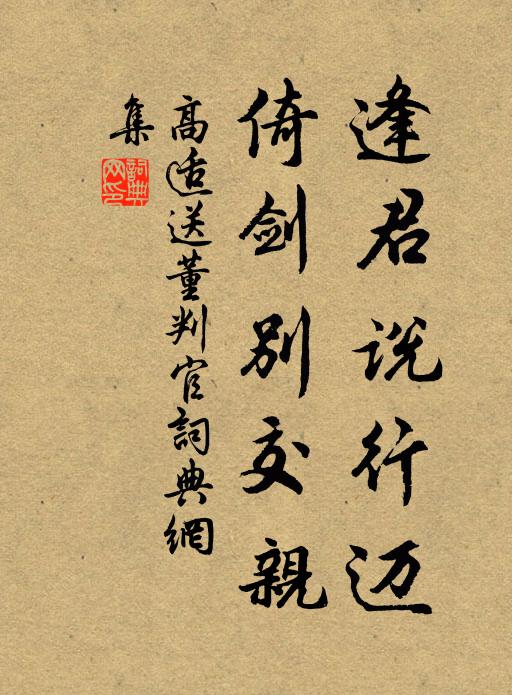 逢君说行迈
倚剑别交親
高适送董判官詞典網
集
詞典
网印